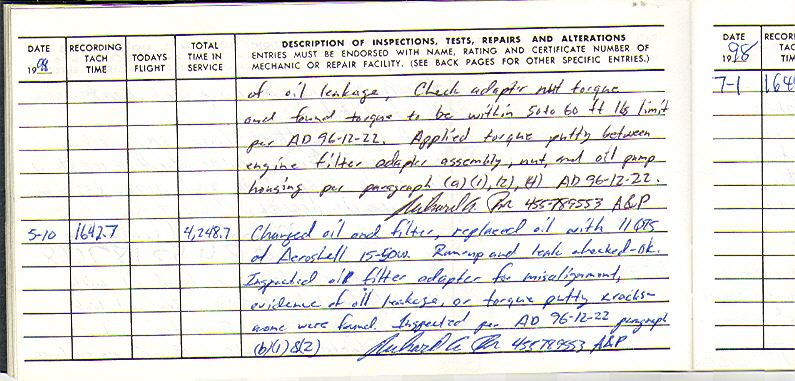 DESCRIPTION OF INSPECTIONS, TESTS, REPAIRS AND ALTERATIONS
DATE RECORDING TACH TIME TODAYS FLIGHT TOTAL TIME IN SERVICE ENTRIES MUST BE ENDORSED WITH NAME, RATING AND CERTIFICATE NUMBER OF
1998 MECHANIC OR REPAIR FACILITY. (SEE BACK PAGES FOR OTHER SPECIFIC ENTRIES.)
of oil leakage, Check adapter nut torque
and found torque to be within 50 to 60 ft lbs limit
per AD 96-12-22. Applied torque putty between
engine filter adapter assembly, nut, and oil pump
housing per paragraph (a)(1),(2),(4) AD 96-12-22.
Richard A. 455789553 A&P
5-10 1642.7 4,248.7 Changed oil and filter, replaced oil with 11 QTS
of Aeroshell 15-50w. Runup and leak checked-OK.
Inspected oil filter adapter for misalignment,
evidence of oil leakage, or torque putty cracks-
none were found. Inspected per AD 96-12-22 paragraph
(b)(1)&(2) Richard A. 455789553 A&P
DATE RECORDING
1998 TACH
TIME
7-1 164